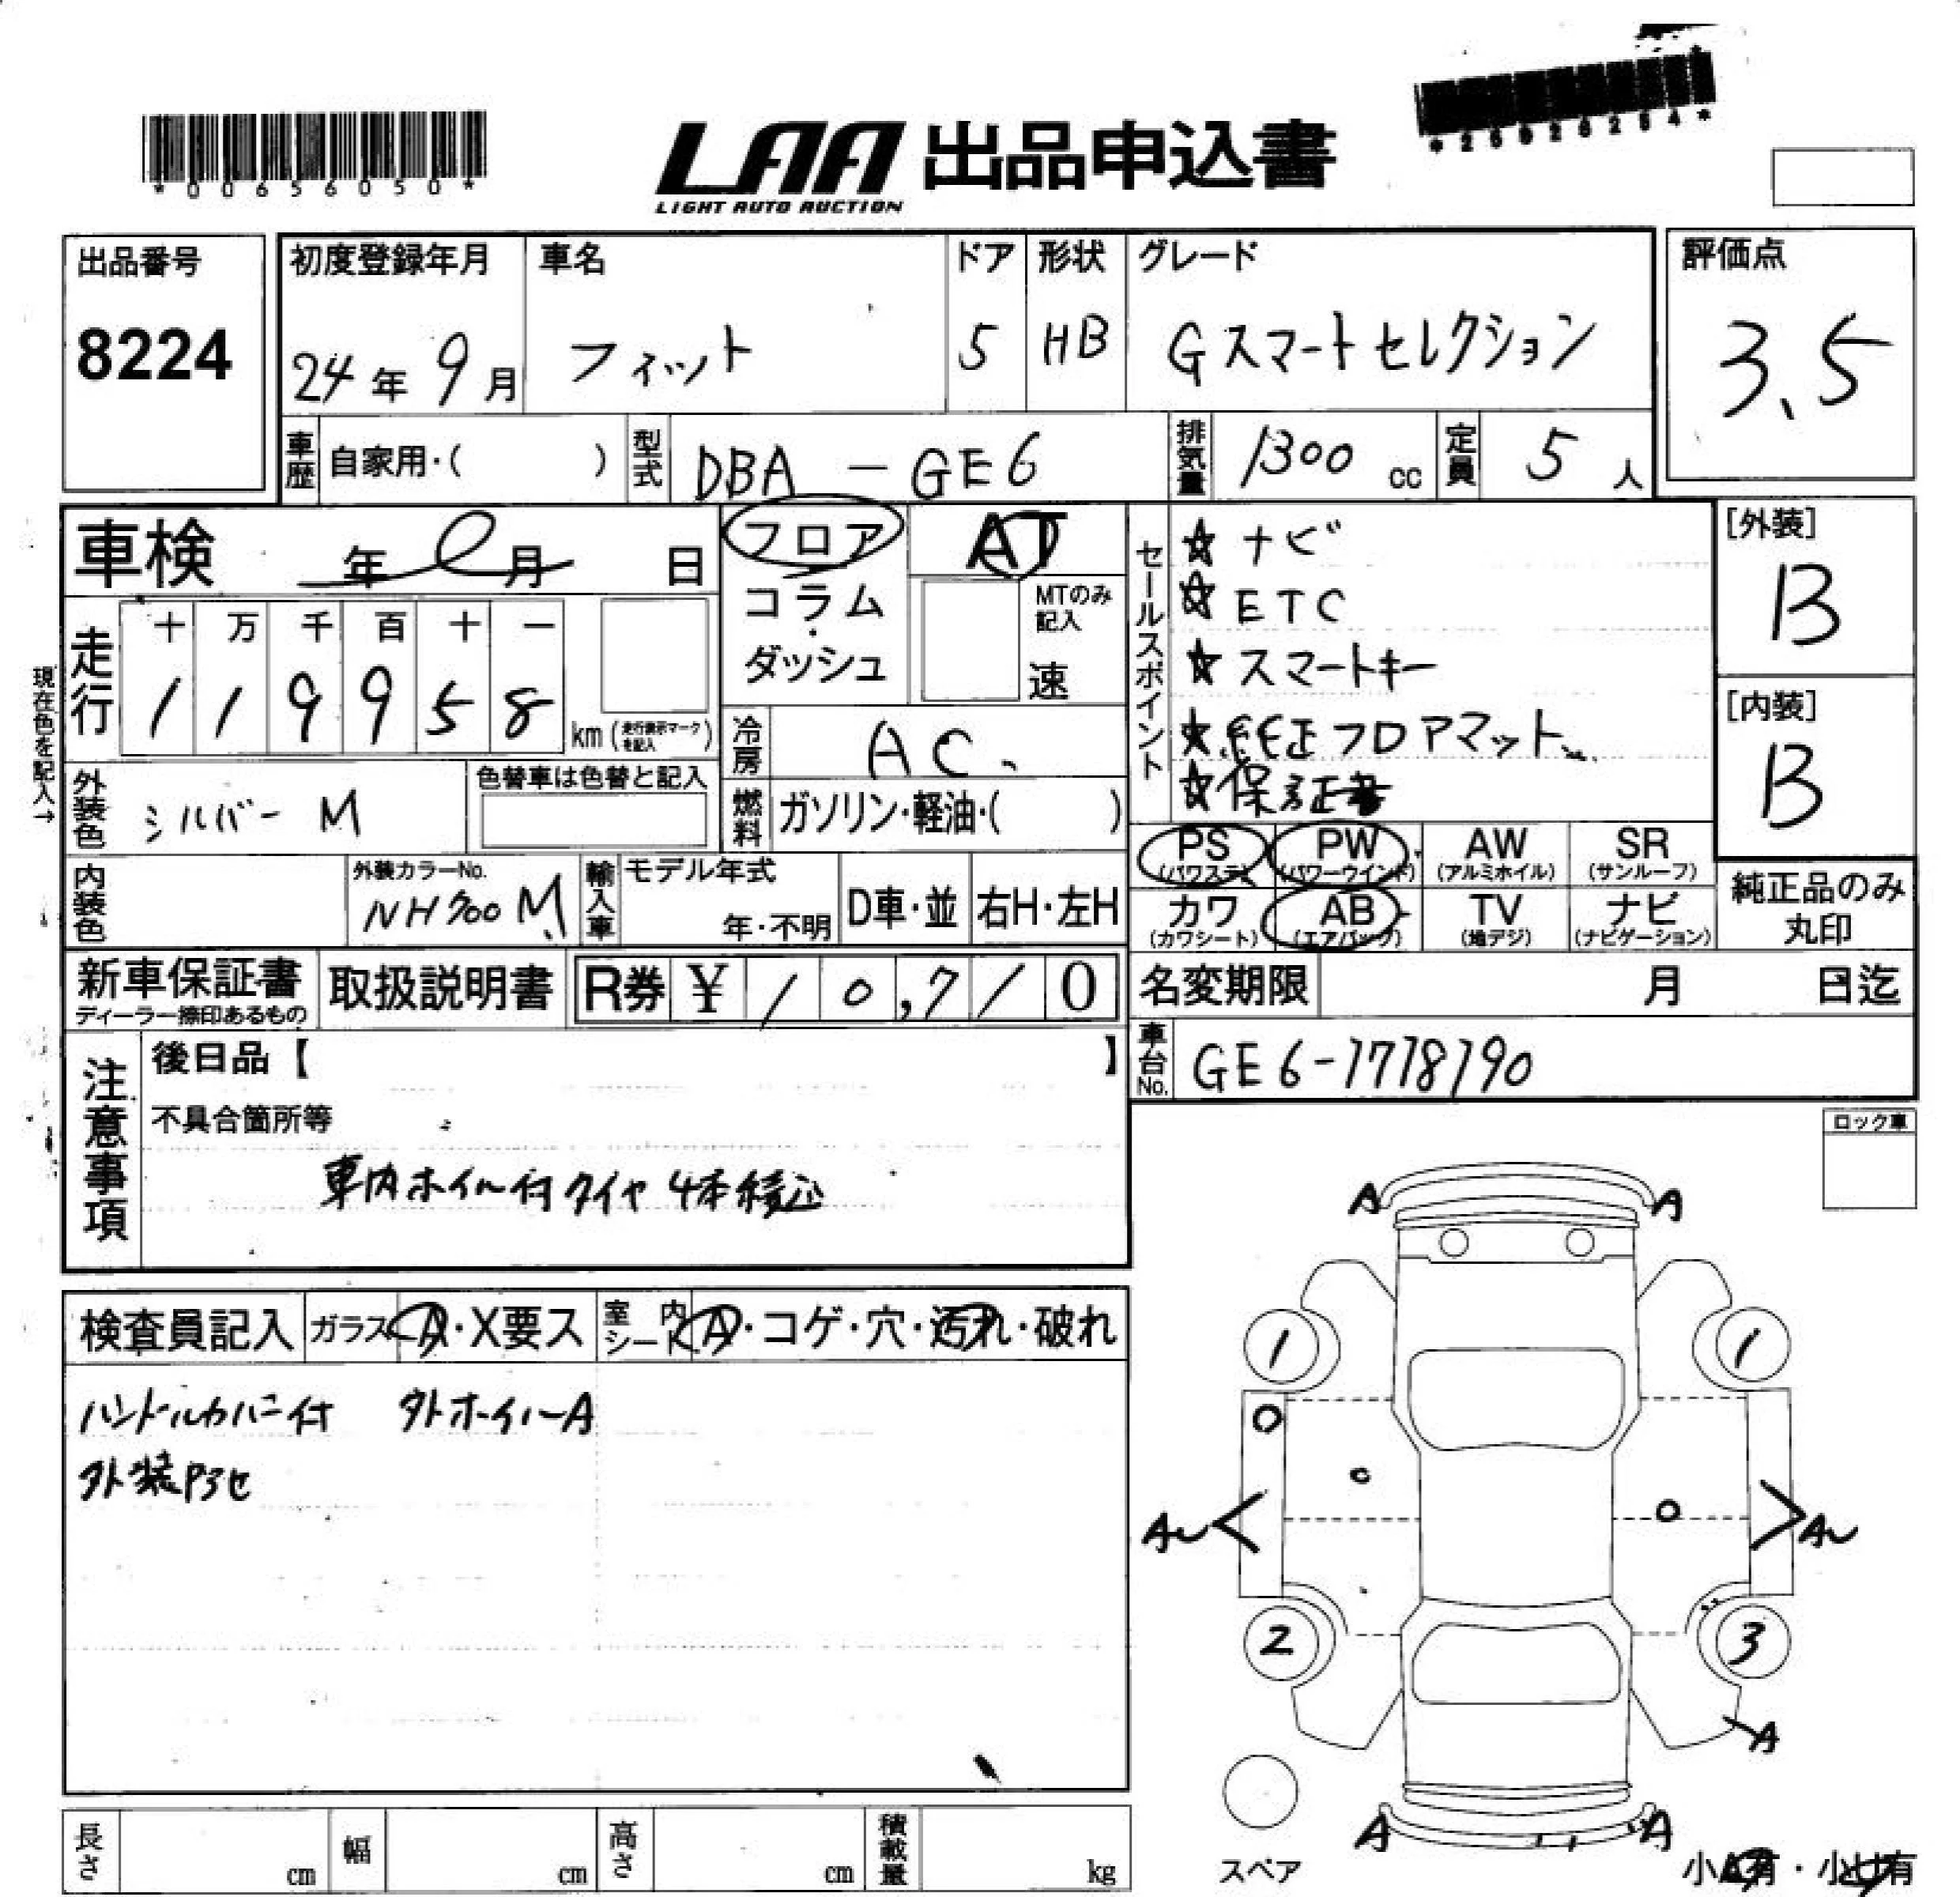 *00656050*
LAA 出品申込書
LIGHT AUTO AUCTION
出品番号 8224
初度登録年月 24年 9月
車名 フィット
ドア 5
形状 HB
グレード Gスマートセレクション
評価点 3.5
車歴 自家用・( )
型式 DBA-GE6
排気量 1300 cc
定員 5 人
車検 年 月 日
フロア
コラム・ダッシュ
AT
MTのみ記入
速
セールスポイント
☆ ナビ
☆ ETC
☆ スマートキー
フロアマット
☆保証書
[外装] B
[内装] B
現在色を記入→
走行 十 万 千 百 十 一
1 1 9 9 5 8 km (走行表示マークを記入)
冷房 AC.
外装色 シルバーM
色替車は色替と記入
燃料 ガソリン・軽油・( )
内装色
外装カラーNo. NH700M
輸入車
モデル年式 年・不明
D車・並
右H・左H
PS (パワステ)
PW (パワーウインド)
AW (アルミホイル)
SR (サンルーフ)
カワ (カワシート)
AB (エアバッグ)
TV (地デジ)
ナビ (ナビゲーション)
純正品のみ丸印
新車保証書
ディーラー捺印あるもの
取扱説明書
R券 ¥ 10,710
名変期限 月 日迄
車台No. GE6-1718190
注意事項
後日品【 】
不具合箇所等
車内ホイル付タイヤ4本積込
ロック車
検査員記入
ガラス A・X要ス
室内シート A・コゲ・穴・汚れ・破れ
ハンドルカバー付
外装
A A
1 1
A A
2 3
A
A A
スペア
長さ cm
幅 cm
高さ cm
積載量 kg